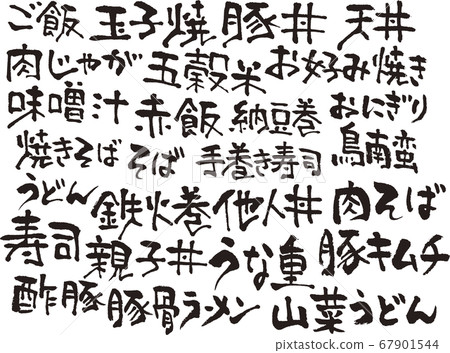 ご飯 玉子焼 豚丼 天丼
肉じゃが 五穀米 お好み焼き
味噌汁 赤飯 納豆巻 おにぎり
焼きそば そば 手巻き寿司 鳥南蛮
うどん 鉄火巻 他人丼 肉そば
寿司 親子丼 うな重 豚キムチ
酢豚 豚骨ラーメン 山菜うどん
67901544